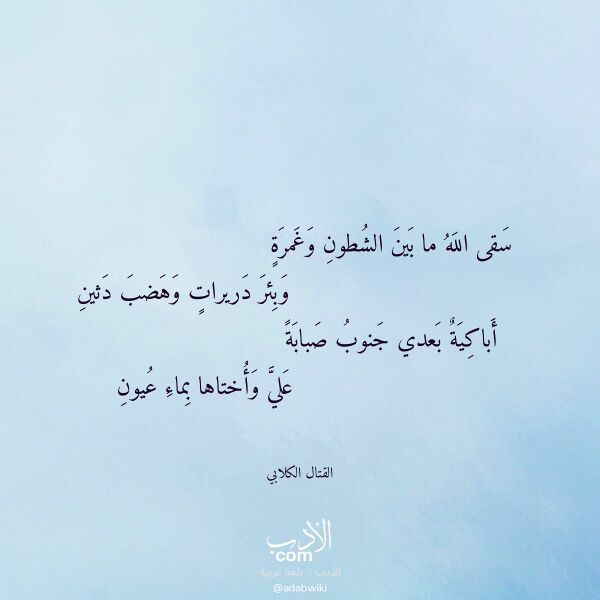 سَقى اللَهُ ما بَينَ الشُطونِ وَغَمرَةٍ
وَبِئرَ دَريراتٍ وَهَضبَ دَثينِ
أَباكِيَةٌ بَعدي جَنوبُ صَبابَةً
عَليَّ وَأُختاها بِماءِ عُيونِ
القتال الكلابي
الأدب
com
الأدب .. بلغة عربية
@adabwiki